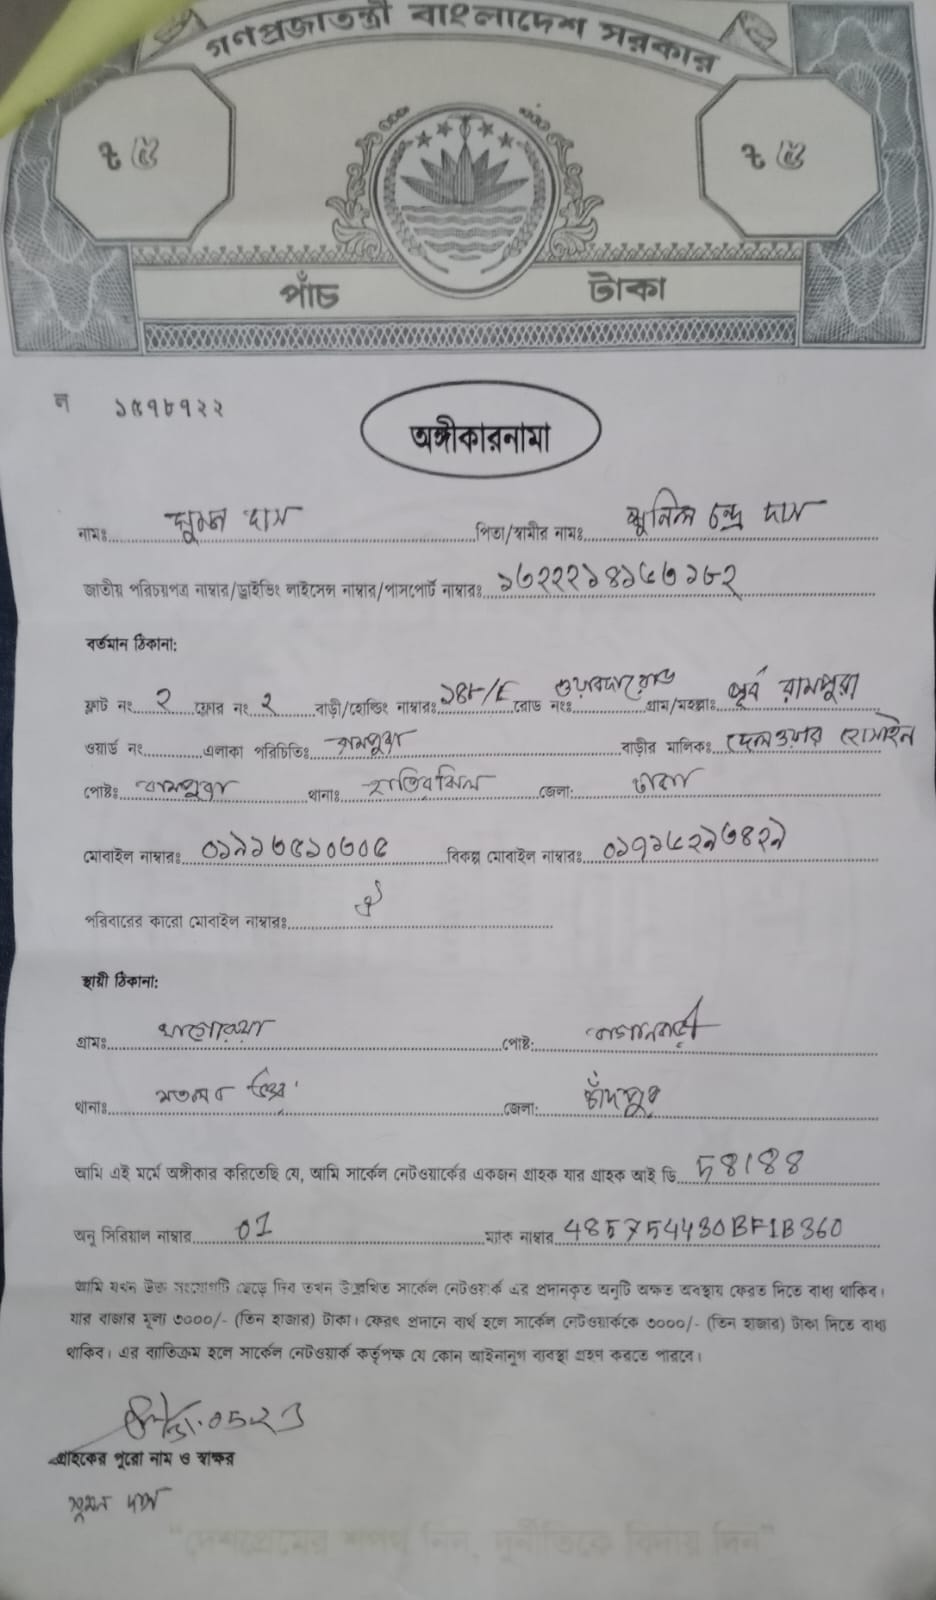 গণপ্রজাতন্ত্রী বাংলাদেশ সরকার
৳ ৫ ৳ ৫
পাঁচ টাকা
ল ১৫৭৮৭২২
অঙ্গীকারনামা
নামঃ সুমন দাস পিতা/স্বামীর নামঃ সুনিল চন্দ্র দাস
জাতীয় পরিচয়পত্র নাম্বার/ড্রাইভিং লাইসেন্স নাম্বার/পাসপোর্ট নাম্বারঃ
বর্তমান ঠিকানা:
ফ্লাট নং ২ ফ্লোর নং ২ বাড়ী/হোল্ডিং নাম্বারঃ ১৪৮/E রোড নংঃ গ্রাম/মহল্লাঃ পূর্ব রামপুরা
ওয়ার্ড নং এলাকা পরিচিতিঃ রামপুরা বাড়ীর মালিকঃ দেলওয়ার হোসাইন
পোষ্টঃ রামপুরা থানাঃ হাতিরঝিল জেলা: ঢাকা
মোবাইল নাম্বারঃ ০১৯১৩৫১০৩০৫ বিকল্প মোবাইল নাম্বারঃ ০১৭১৫২৯৩৪২৯
পরিবারের কারো মোবাইল নাম্বারঃ ঐ
স্থায়ী ঠিকানা:
গ্রামঃ পোষ্ট:
থানাঃ মতলব উত্তর জেলা: চাঁদপুর
আমি এই মর্মে অঙ্গীকার করিতেছি যে, আমি সার্কেল নেটওয়ার্কের একজন গ্রাহক যার গ্রাহক আই ডি 58188
অনু সিরিয়াল নাম্বার 01 ম্যাক নাম্বার 485754430BF1B360
আমি যখন উক্ত সংযোগটি ছেড়ে দিব তখন উল্লেখিত সার্কেল নেটওয়ার্ক এর প্রদানকৃত অনুটি অক্ষত অবস্থায় ফেরত দিতে বাধ্য থাকিব।
যার বাজার মূল্য ৩০০০/- (তিন হাজার) টাকা। ফেরৎ প্রদানে ব্যর্থ হলে সার্কেল নেটওয়ার্ককে ৩০০০/- (তিন হাজার) টাকা দিতে বাধ্য
থাকিব। এর ব্যতিক্রম হলে সার্কেল নেটওয়ার্ক কর্তৃপক্ষ যে কোন আইনানুগ ব্যবস্থা গ্রহণ করতে পারবে।
গ্রাহকের পুরো নাম ও স্বাক্ষর
সুমন দাস
"দেশপ্রেমের শপথ নিন, দুর্নীতিকে বিদায় দিন"